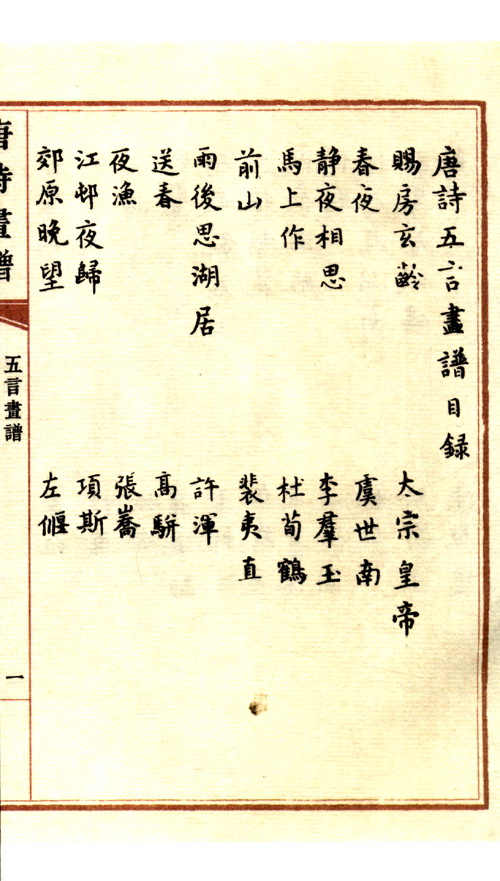 唐詩五言畫譜目録
賜房玄齡 太宗皇帝
春夜 虞世南
静夜相思 李羣玉
馬上作 杜荀鶴
前山 裴夷直
雨後思湖居 許渾
送春 高駢
夜漁 張喬
江邨夜歸 項斯
郊原晚望 左偃
唐詩畫譜
五言畫譜
一